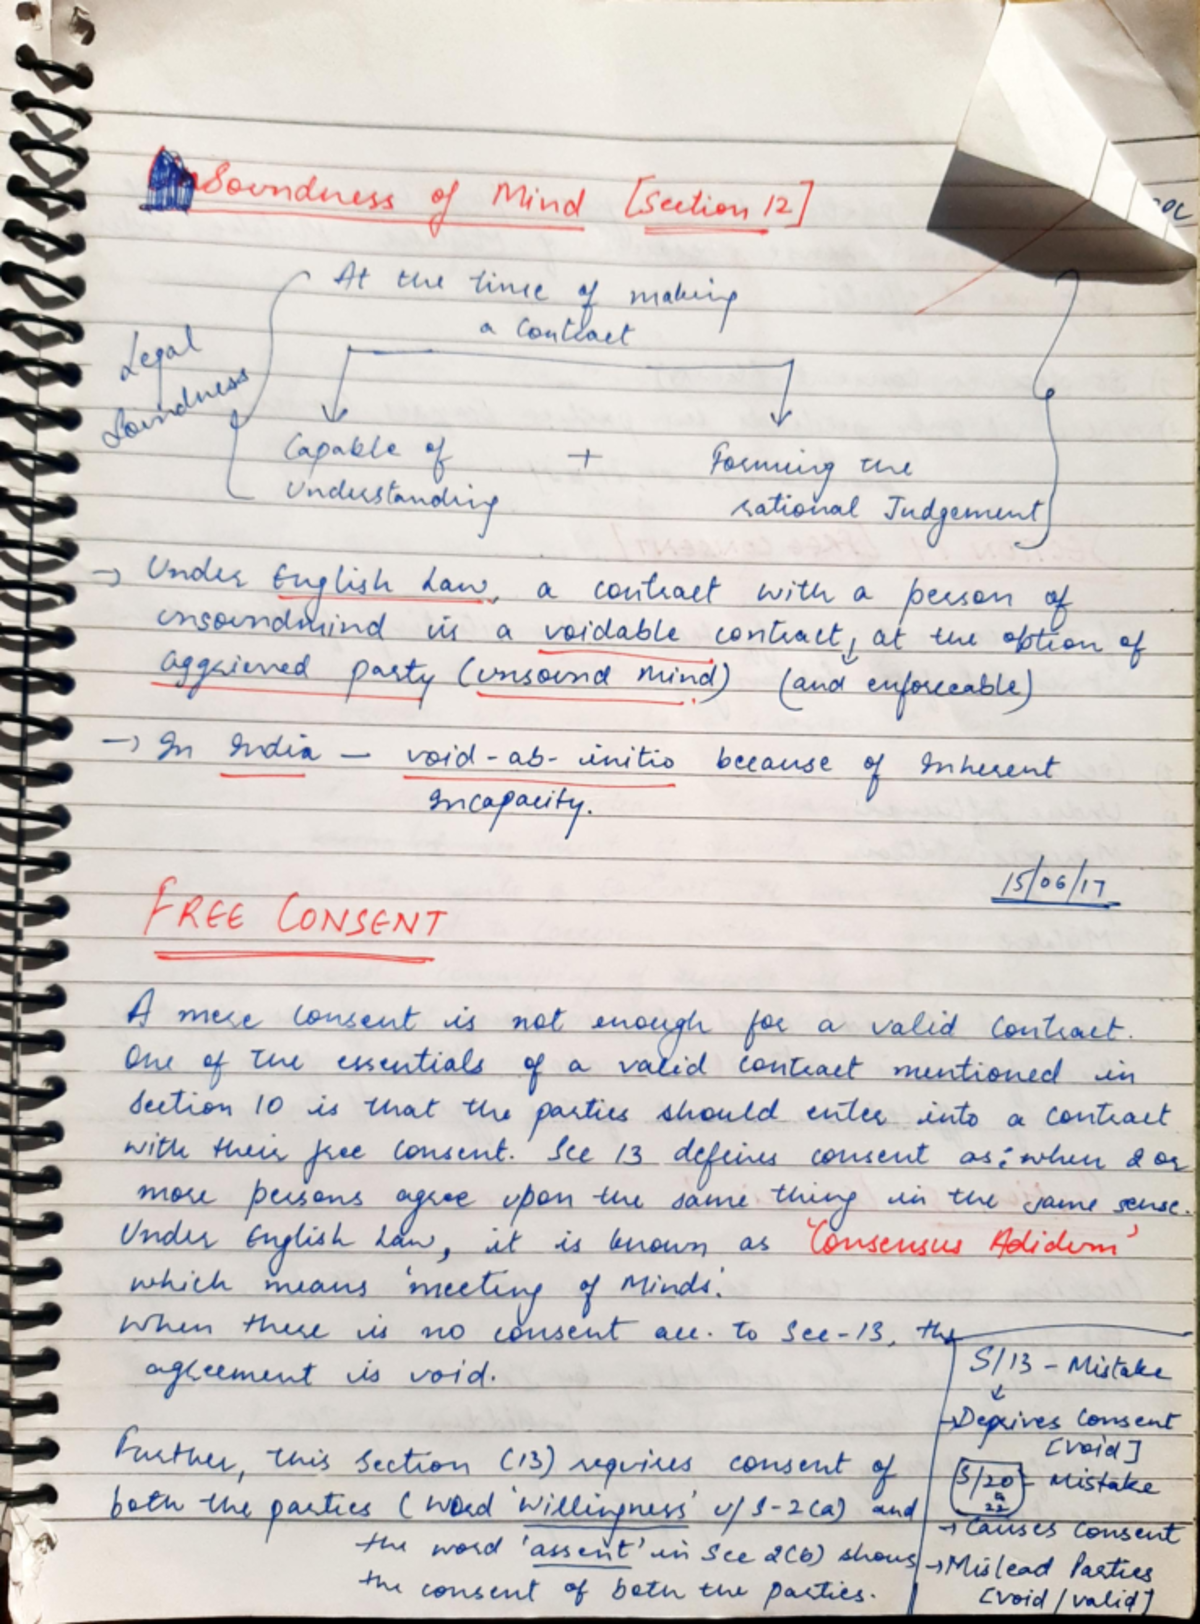 Soundness of Mind [Section 12]
At the time of making
a Contract
Legal
Soundness
Capable of + Forming the
understanding rational Judgement
→ Under English Law, a contract with a person of
unsoundmind is a voidable contract, at the option of
aggrieved party (unsound mind) (and enforceable)
→ In India — void-ab-initio because of Inherent
Incapacity.
15/06/17
FREE CONSENT
A mere consent is not enough for a valid contract.
One of the essentials of a valid contract mentioned in
Section 10 is that the parties should enter into a contract
with their free consent. Sec 13 defines consent as: when 2 or
more persons agree upon the same thing in the same sense.
Under English Law, it is known as 'Consensus Adidem'
which means 'meeting of Minds'.
When there is no consent acc. to Sec-13, the
agreement is void.
Further, this Section (13) requires consent of
both the parties (word 'willingness' u/S-2(a) and
the word 'assent' in Sec 2(b) shows
the consent of both the parties.
S/13 - Mistake
→ Deprives Consent
[void]
S/20 - Mistake
& 22
→ Causes Consent
→ Mislead Parties
[void/valid]